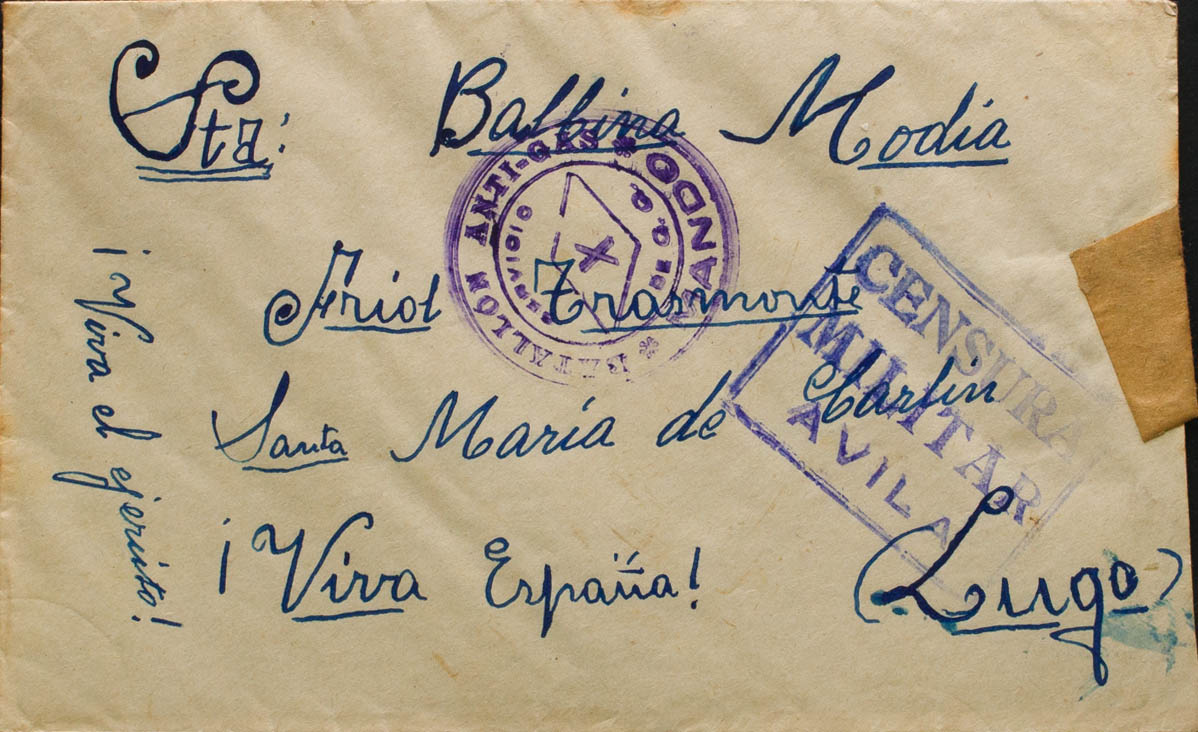 Sta:
Balbina Modia
Friol Trasmonte
Santa María de Carlin
¡Viva España!
(Lugo)
¡Viva el ejercito!
BATALLÓN ANTI-GAS * MANDO *
SERVICIO DE
CENSURA
MILITAR
AVILA